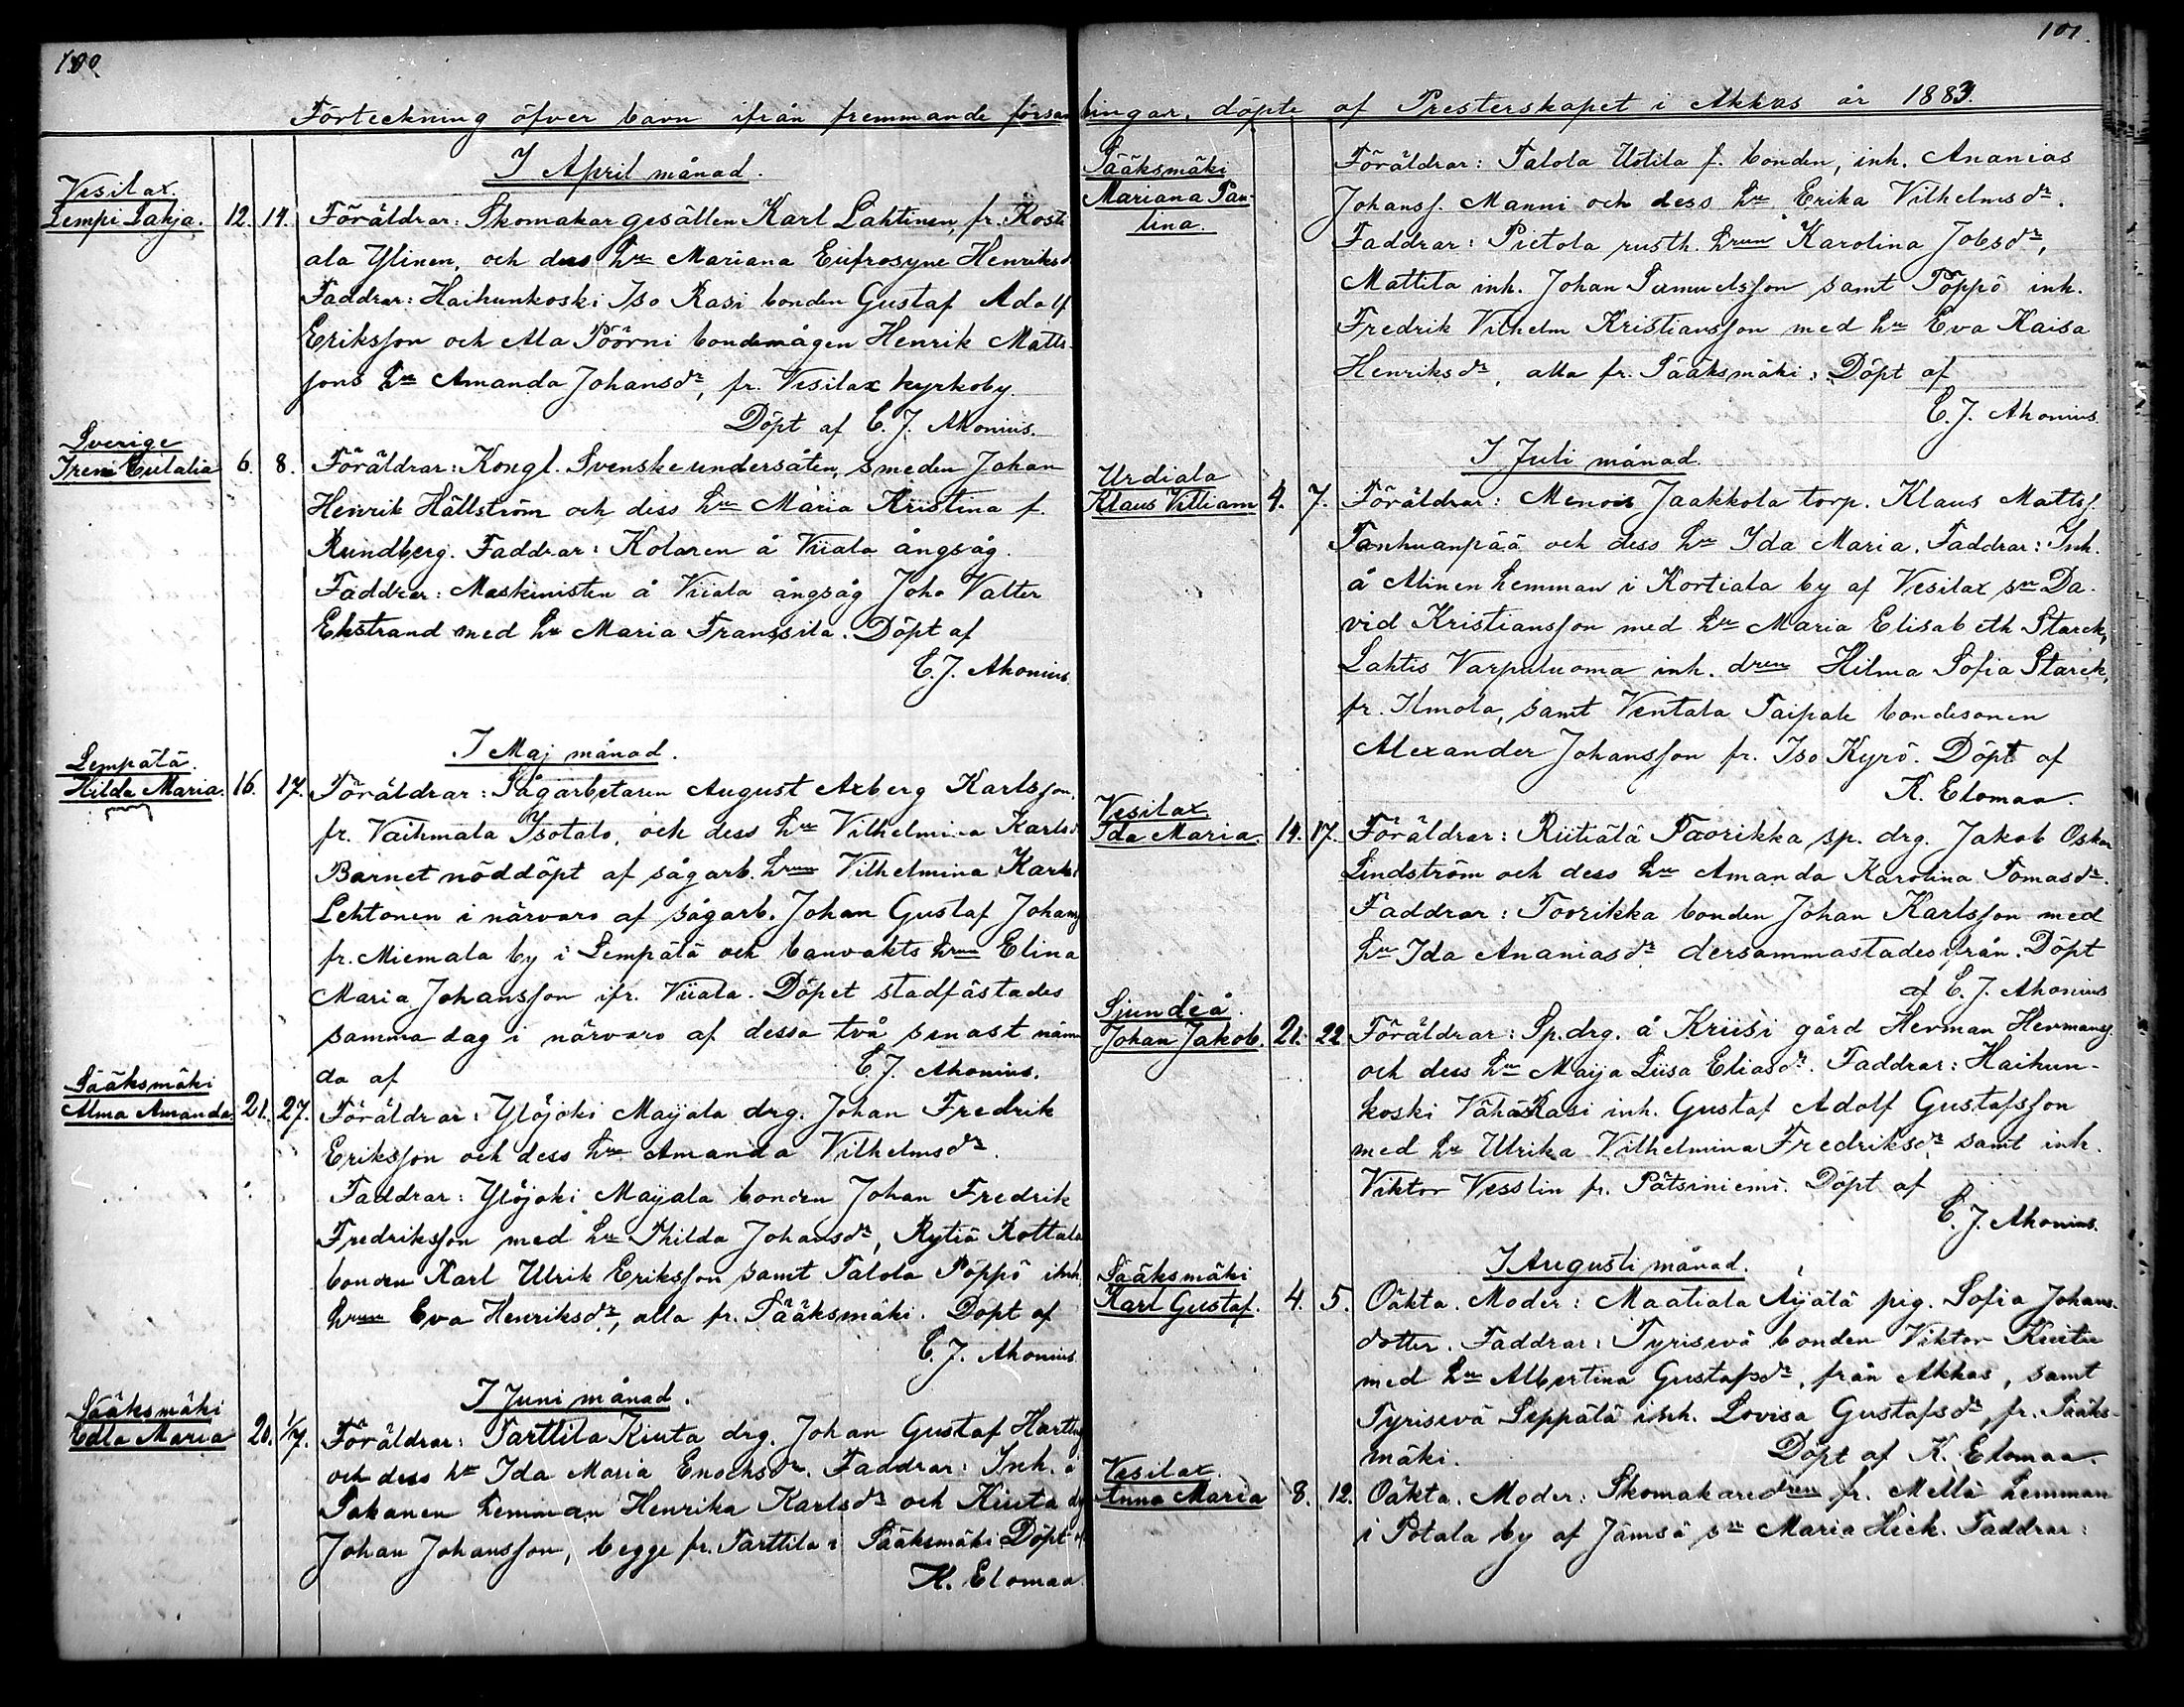 100
Förteckning öfver barn ifrån fremmande försam
I April månad.
Vesilax.
Lempi Lahja. 12. 14. Föräldrar: Skomakar gesällen Karl Lahtinen, fr. Kosti
ala Ylinen, och dess hu Mariana Eufrosyne Henriksd
Faddrar: Haihunkoski Iso Rasi bonden Gustaf Adolf
Eriksson och Ala Pöörni bondemågen Henrik Matts-
sons hu Amanda Johansdr, fr. Vesilax kyrkoby.
Döpt af C. J. Ahonius.
Sverige
Irene Eulalia 6. 8. Föräldrar: Kongl. Svenske undersåten, smeden Johan
Henrik Hällström och dess hu Maria Kristina f.
Rundberg. Faddrar: Kolaren å Viiala ångsåg.
Faddrar: Maskinisten å Viiala ångsåg Joh. Valter
Ekstrand med hu Maria Franssila. Döpt af
C. J. Ahonius.
I Maj månad.
Lempälä.
Hilda Maria. 16. 17. Föräldrar: Sågarbetaren August Axberg Karlsson,
fr. Vaihmala Isotalo, och dess hu Vilhelmina Karlsd
Barnet nöddöpt af sågarb. hrun Vilhelmina Karlsd
Lehtonen i närvaro af sågarb. Johan Gustaf Johans
fr. Miemala by i Lempälä och banvakts hrun Elina
Maria Johansson ifr. Viiala. Döpet stadfästades
samma dag i närvaro af dessa två senast näm
da af C. J. Ahonius.
Sääksmäki
Alma Amanda 21. 27. Föräldrar: Ylöjoki Maijala drg. Johan Fredrik
Eriksson och dess hu Amanda Vilhelmsdr.
Faddrar: Ylöjoki Maijala bonden Johan Fredrik
Fredriksson med hu Thilda Johansdr, Rytiä Kottala
bonden Karl Ulrik Eriksson samt Talola Pöppö inh.
hrun Eva Henriksdr, alla fr. Sääksmäki. Döpt af
C. J. Ahonius
I Juni månad.
Sääksmäki
Edla Maria 20. 1/7. Föräldrar: Tarttila Kiuta drg. Johan Gustaf
och dess hu Ida Maria Enochsdr. Faddrar: Inh. å
Sakanen hemman Henrika Karlsdr och Kiuta dg
Johan Johansson, begge fr. Tarttila i Sääksmäki Döpt af
K. Elomaa.
101.
lingar, döpte af Presterskapet i Akkas år 1883.
Sääksmäki
Mariana Pau-
lina.
Föräldrar: Talola Ustila f. bonden, inh. Ananias
Johanss. Manni och dess hu Erika Vilhelmsdr.
Faddrar: Pietola rusth. hrun Karolina Jobsdr,
Mattila inh. Johan Samuelsson samt Pöppö inh.
Fredrik Vilhelm Kristiansson med hu Eva Kaisa
Henriksdr, alla fr. Sääksmäki. Döpt af
C. J. Ahonius
I Juli månad.
Urdiala
Klaus Villiam 4. 7. Föräldrar: Menois Jaakkola torp. Klaus Mattss.
Tanhuanpää och dess hu Ida Maria. Faddrar: Inh.
å Alinen hemman i Kortiala by af Vesilax sn Da-
vid Kristiansson med hu Maria Elisabeth Starck,
Lahtis Varpuluoma inh. drun Hilma Sofia Starck,
fr. Ilmola, samt Ventala Taipale bondesonen
Alexander Johansson fr. Iso Kyrö. Döpt af
K. Elomaa.
Vesilax
Ida Maria. 14. 17. Föräldrar: Riitiälä Toorikka sp. drg. Jakob Oskar
Lindström och dess hu Amanda Karolina Tomasdr.
Faddrar: Toorikka bonden Johan Karlsson med
hu Ida Ananiasdr dersammastädes ifrån. Döpt
af C. J. Ahonius
Sjundeå.
Johan Jakob. 21. 22. Föräldrar: Sp. drg. å Kriisi gård Herman Hermanss
och dess hu Maija Liisa Eliasdr. Faddrar: Haihun-
koski Vähä Rasi inh. Gustaf Adolf Gustafsson
med hu Ulrika Vilhelmina Fredriksdr samt inh.
Viktor Vesslin fr. Pätsiniemi. Döpt af
C. J. Ahonius.
I Augusti månad.
Sääksmäki
Karl Gustaf. 4. 5. Oäkta. Moder: Maatiala Äijälä pig. Sofia Johans-
dotter. Faddrar: Tyrisevä bonden Viktor Kiuta
med hu Albertina Gustafsdr, från Akkas, samt
Tyrisevä Seppälä inh. Lovisa Gustafsdr, fr. Sääks-
mäki. Döpt af K. Elomaa.
Vesilax.
Anna Maria 8. 12. Oäkta. Moder: Skomakaredrun fr. Mellä hemman
i Potala by af Jämsä sn Maria Hick. Faddrar: